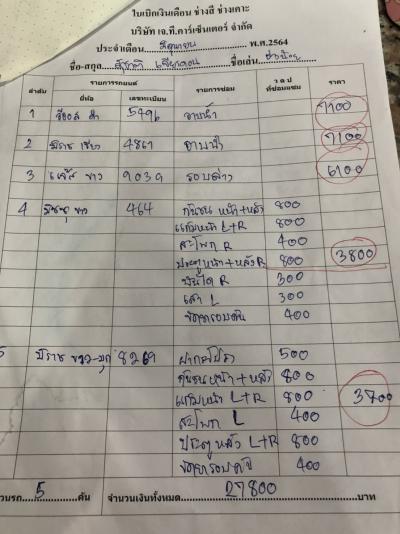 ใบเบิกเงินเดือน ช่างสี ช่างเคาะ
บริษัท เจ.ที.คาร์เซ็นเตอร์ จำกัด
ประจำเดือน มิถุนายน พ.ศ.2564
ชื่อ-สกุล ชื่อเล่น
ลำดับ รายการรถยนต์ รายการซ่อม ว ด ป ที่ซ่อมแซม ราคา
ยี่ห้อ เลขทะเบียน
1 วีออส ดำ 5496 อาบน้ำ 7100
2 มิราจ เขียว 4867 อาบน้ำ 7100
3 ขาว 9039 รอบล่าง 6100
4 ขาว 464 กันชน หน้า+หลัง 800
แก้มหน้า L+R 800
สะโพก R 400
ประตูหน้า+หลัง R 800 3800
บันได R 300
เสา L 300
ขัดรอบคัน 400
5 มิราจ ขาว-มุก 8269 ฝากระโปรง 500
กันชนหน้า+หลัง 800
แก้มหน้า L+R 800 3700
สะโพก L 400
ประตู หลัง L+R 800
400
วนรถ 5 คัน จำนวนเงินทั้งหมด 27800 บาท